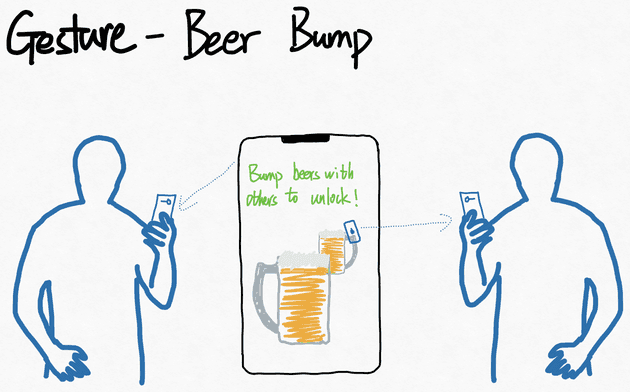 Gesture - Beer Bump
Bump beers with
others to unlock!